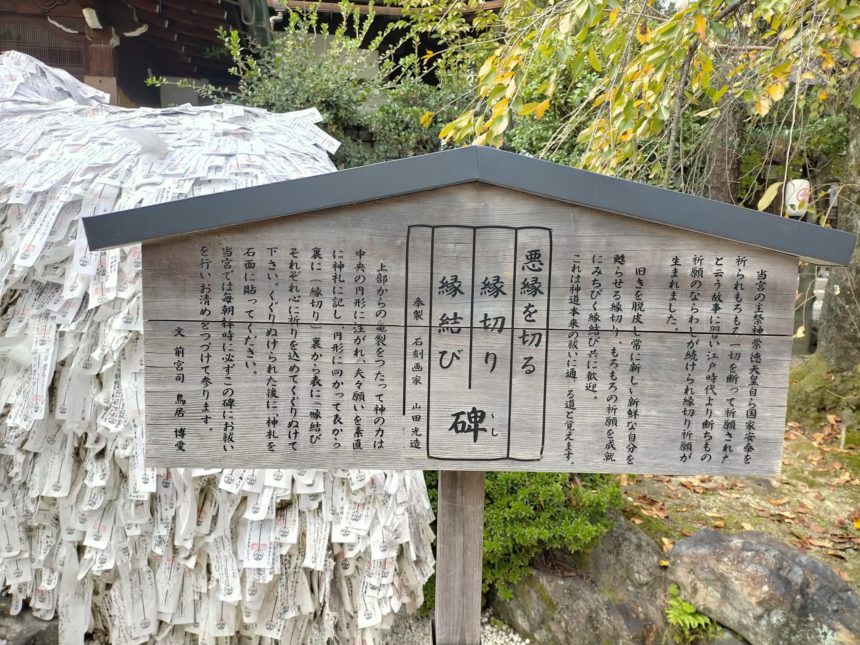 当宮の主祭神崇徳天皇自ら国家安泰を
祈られもろもろ一切を断って祈願された
と云う故事に因い江戸時代より断ちもの
祈願のならわしが続けられ縁切り祈願が
生まれました。
旧きを脱皮し常に新しい新鮮な自分を
甦らせる縁切り、もろもろの祈願を成就
にみちびく縁結び共に歓迎。
これは神道本来の祓いに通ずる道と覚えます。
悪縁を切る
縁切り
縁結び
碑
いし
奉製 石刻画家 山田光造
上部からの亀裂をつたって神の力は
中央の円形に注がれ、夫々願いを素直
に神札に記し、円形に向かって表から
裏に(縁切り)裏から表に(縁結び)
それぞれ心に祈りを込めてくぐりぬけて
下さい。くぐりぬけられた後に神札を
石面に貼ってください。
当宮では毎朝拝時に必ずこの碑にお祓い
を行いお清めをつづけて参ります。
文 前宮司 鳥居 博愛